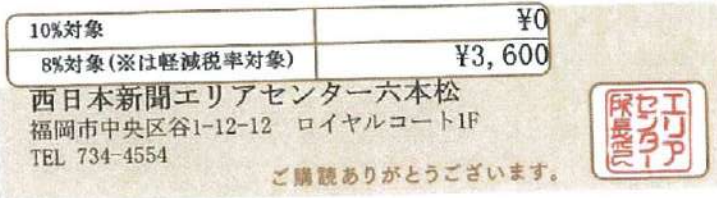 10%対象 ¥0
8%対象(※は軽減税率対象) ¥3,600
西日本新聞エリアセンター六本松
福岡市中央区谷1-12-12 ロイヤルコート1F
TEL 734-4554
ご購読ありがとうございます。
エリア
センター